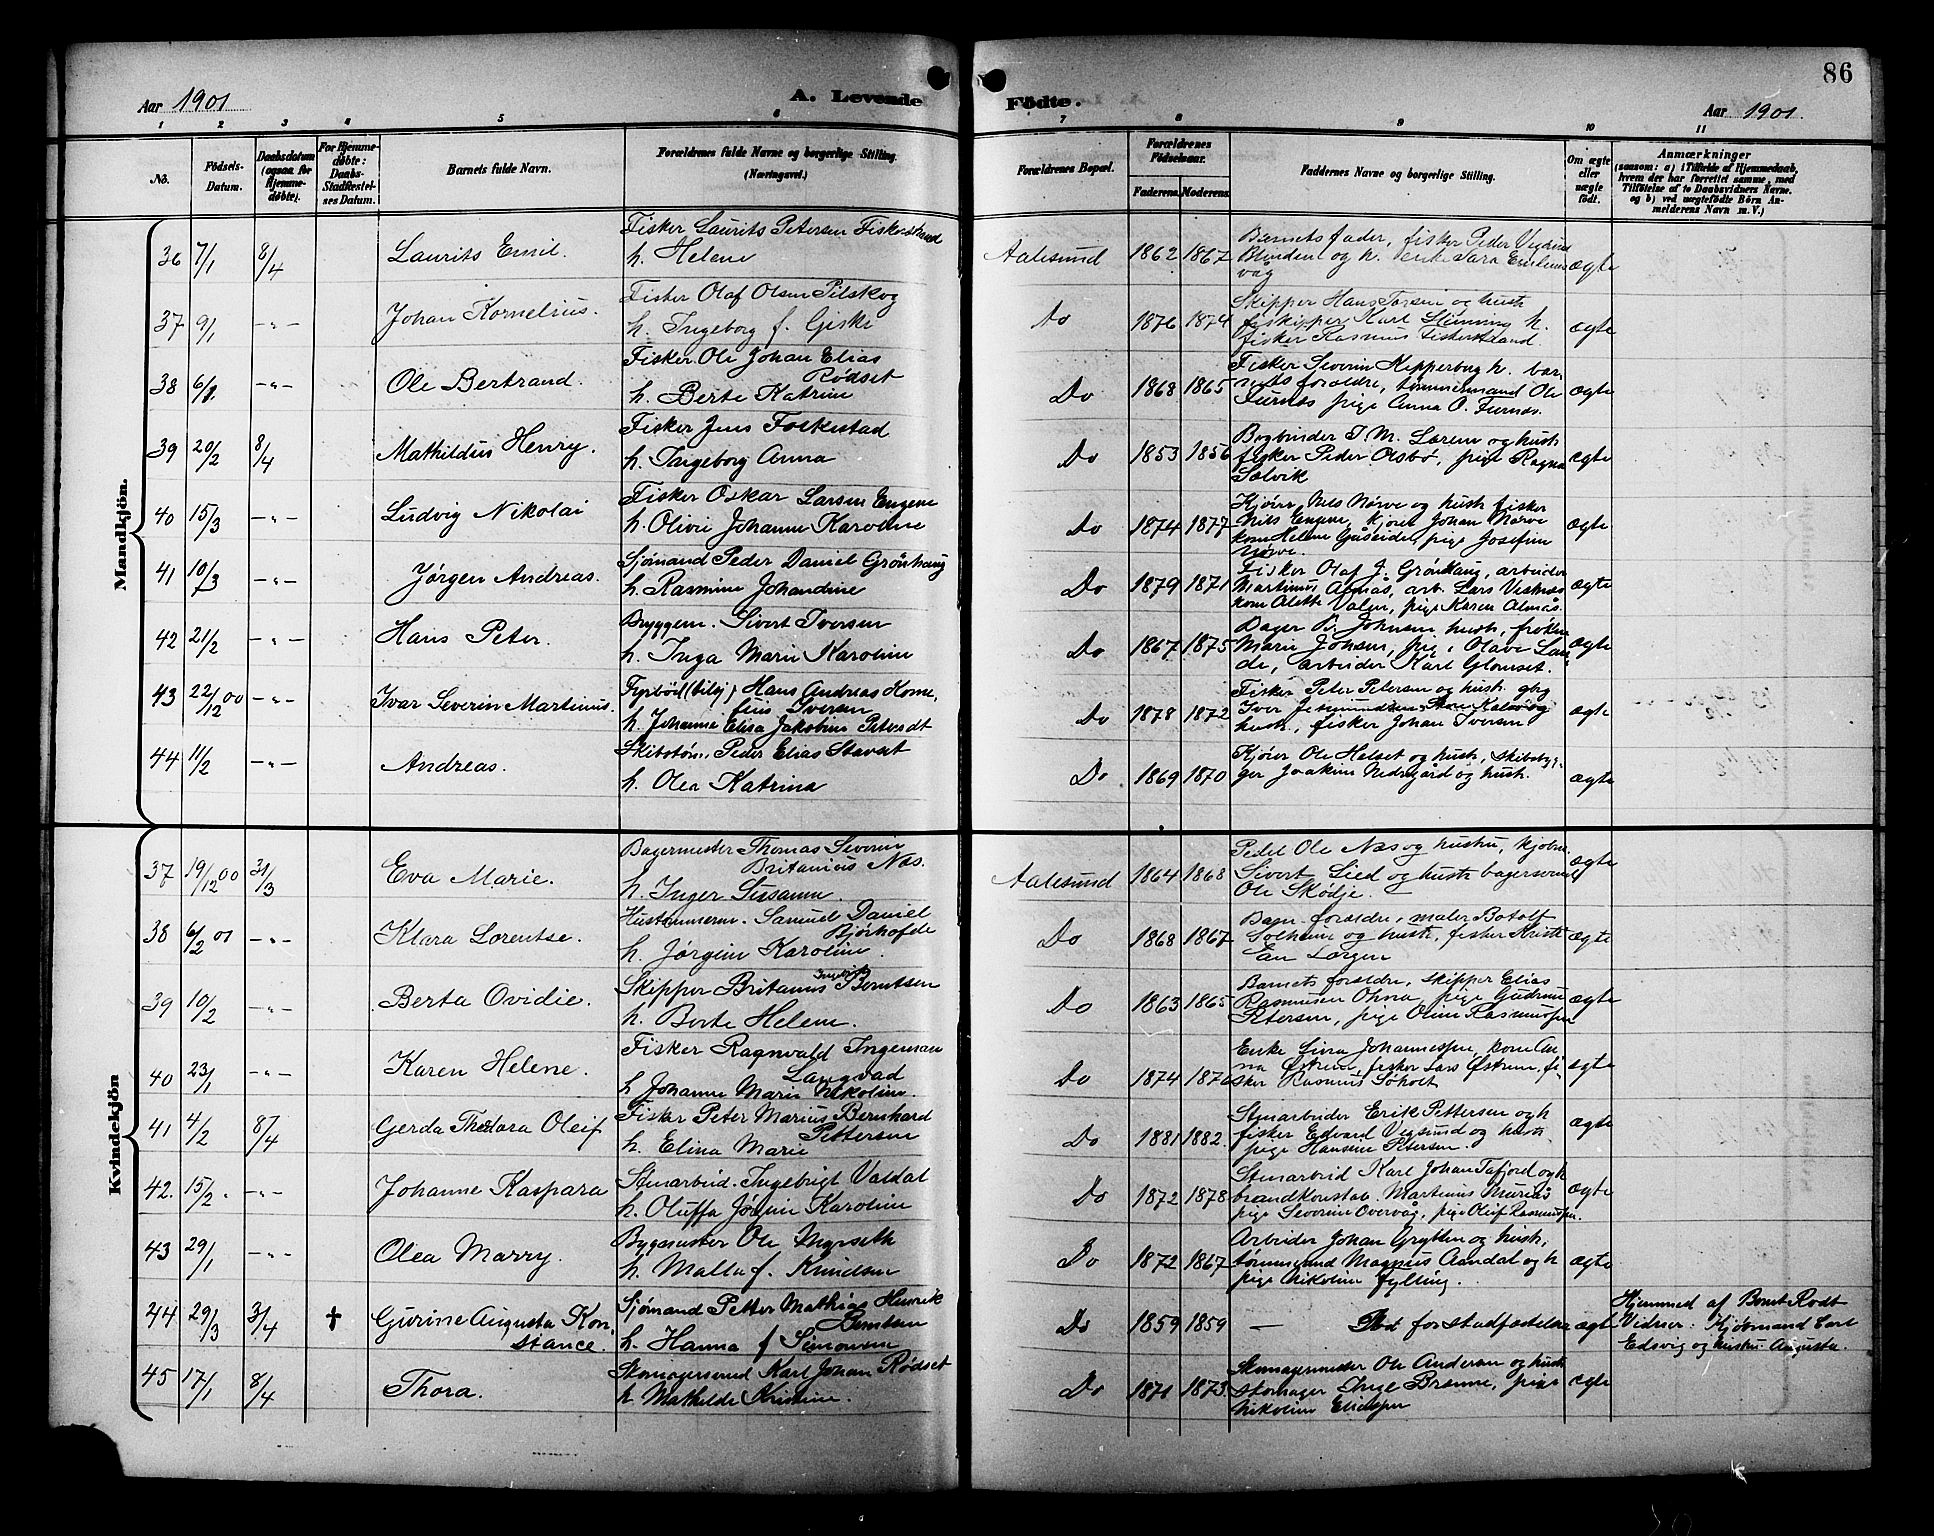 86
Aar 1901
A. Levende
Födte.
Aar 1901.
1 2 3 4 5 6 7 8 9 10 11
No.
Födsels-Datum.
Daabsdatum (ogsaa for Hjemmedøbte).
For Hjemmedøbte: Daabs-Stadfæstelses Datum.
Barnets fulde Navn.
Forældrenes fulde Navne og borgerlige Stilling. (Næringsvei.)
Forældrenes Bopæl.
Forældrenes Födselsaar.
Faderens. Moderens.
Faddernes Navne og borgerlige Stilling.
Om ægte eller uægte født.
Anmærkninger
(saasom: a) i Tilfælde af Hjemmedaab, hvem der har forrettet samme, med Tilföielse af to Daabsvidners Navne. og b) ved uægtefødte Börn Anmelderens Navn m. V.)
Mandkjön.
36 7/1 8/4 Laurits Emil.
Fisker Laurits Petersen Fiskerstrand
h. Helene
Aalesund 1862 1867
Barnets fader, fisker Peder
ægte
37 9/1 -"- Johan Kornelius.
Fisker Olaf Olsen Pilskog
h. Ingeborg f. Giske
do 1876 1874
Skipper Hans Larsen og hustr
fiskipper Karl Flemning h.
fisker Rasmus Fiskerstrand.
ægte
38 6/1 -"- Ole Bertrand.
Fisker Ole Johan Elias
Rødset
h. Berte Katrine
Do 1868 1865
Fisker Severin Kipperberg h. bar
nets forældre, tømmermand Ole
Furnes pige Anna O. Furnes.
ægte
39 20/2 8/4 Mathildus Henry.
Fisker Jens Folkestad
h. Ingeborg Anna
Do 1853 1856
Bogbinder I. M. Larsen og hustr
fisker Peder Osbø, pige Ragna
Solvik
ægte
40 15/3 -"- Ludvig Nikolai
Fisker Oskar Larsen Engene
h. Olivie Johanne Karoline
Do 1874 1877
Kjører Nils Nørve og hustr fisker
Nils Engene, kjører Johan Nørve
kone Helene Gåseide, pige Josefine
Nørve.
ægte
41 10/3 -"- Jørgen Andreas.
Sjømand Peder Daniel Grönhaug
h. Rasmine Johandine
Do 1879 1871
Fisker Olaf J. Grönhaug, arbeider
Martinus Almås, arb. Lars Vestnes
kone Alette Valen, pige Karen Almås.
ægte
42 21/2 -"- Hans Peter.
Bryggem. Sivert Iversen
h. Inga Marie Karoline
Do 1867 1875
Bager B. Johnsen hustr, frøken
Marie Johnsen, pige Olave Lan
de, arbeider Karl Glomset.
ægte
43 22/12 00 -"- Ivar Severin Martinus.
Fyrbød (bilej) Hans Andreas Korne
lius Iversen
h. Johanne Elisa Jakobine Peterdt
Do 1878 1872
Fisker Peter Petersen og hustr. gbg
Iver Kalsvög
hustr, fisker Johan Iversen
ægte
44 11/2 -"- Andreas.
Skibstøm. Peder Elias Stavset
h. Olea Katrina
Do 1869 1870
Kjører Ole Helset og hustr, skibsbyg-
ger Joakim Nedregård og hustr.
ægte
Kvindekjön
37 19/12 00 31/3 Eva Marie.
Bagermester Thomas Severin
Britanius Næs.
h. Inger Susanne
Aalesund 1864 1868
Pedel Ole Næs og hustru, kjøbm.
Sivert Lied og hustr bagersvend
Ole Skødje.
ægte
38 6/2 01 -"- Klara Lorentse.
Hustømmerm. Samuel Daniel
Bjørhofde
h. Jørgine Karoline
Do 1868 1867
Barn. forældre, maler Botolf
Solheim og hustr, fisker Kristi
an Lorgen
ægte
39 10/2 -"- Berta Ovidie.
Skipper Britanus Ingebrigt Berntsen
h. Berte Helene.
Do 1863 1865
Barnets forældre, skipper Elias
Rasmussen Ohna, pige Gudrun
Petersen, pige Oline Rasmussen
ægte
40 23/1 -"- Karen Helene.
Fisker Ragnvald Ingeman
Langvad
h. Johanne Marie Nikoline.
Do 1874 1876
Enke Sivra Johannessen, kone An
na Østrem, fisker Lars Østrem, fi
sker Rasmus Søholt
ægte
41 4/2 8/4 Gerda Theodora Oleif
Fisker Peter Marius Bernhard
Pettersen
h. Elina Marie
Do 1881 1882.
Stenarbeider Erik Pettersen og h
fisker Edvard Vegsund og hustr.
pige Hansine Petersen.
ægte
42. 15/2. -"- Johanne Kaspara
Stenarbeid. Ingebrigt Valdal
h. Oluffa Jørgine Karoline
Do 1872 1878
Stenarbeid Karl Johan Tafjord og h
brandkonstab. Martinus Muriås
pige Severine Overvåg, pige Oleif Rasmussen.
ægte
43 29/1 -"- Olea Marry.
Bygmester Ole Myrseth
h. Malla f. Knudsen
Do 1872 1867
Arbeider Johan Grytten og hustr,
tømmermand Magnus Aandal og h
pige Nikoline Fylling.
ægte
44 29/3 3/4 † Gurine Augusta Kon
stance.
Sjømand Petter Mathias Henrik
Berntsen
h. Hanna f Simonsen
Do 1859 1859
— Død før stadfæstelse
ægte
Hjemmed af Bernt Rødt
Vidner: Kjøbmand Carl
Edsvig og hustru Augusta.
45 17/1 8/4 Thora.
Skomagersvend Karl Johan Rødset
h. Mathilde Kristine.
Do 1871 1873.
Skomagermester Ole Andersen og hustr
skomager Inge Brænne, pige
Nikoline Eliassen
ægte